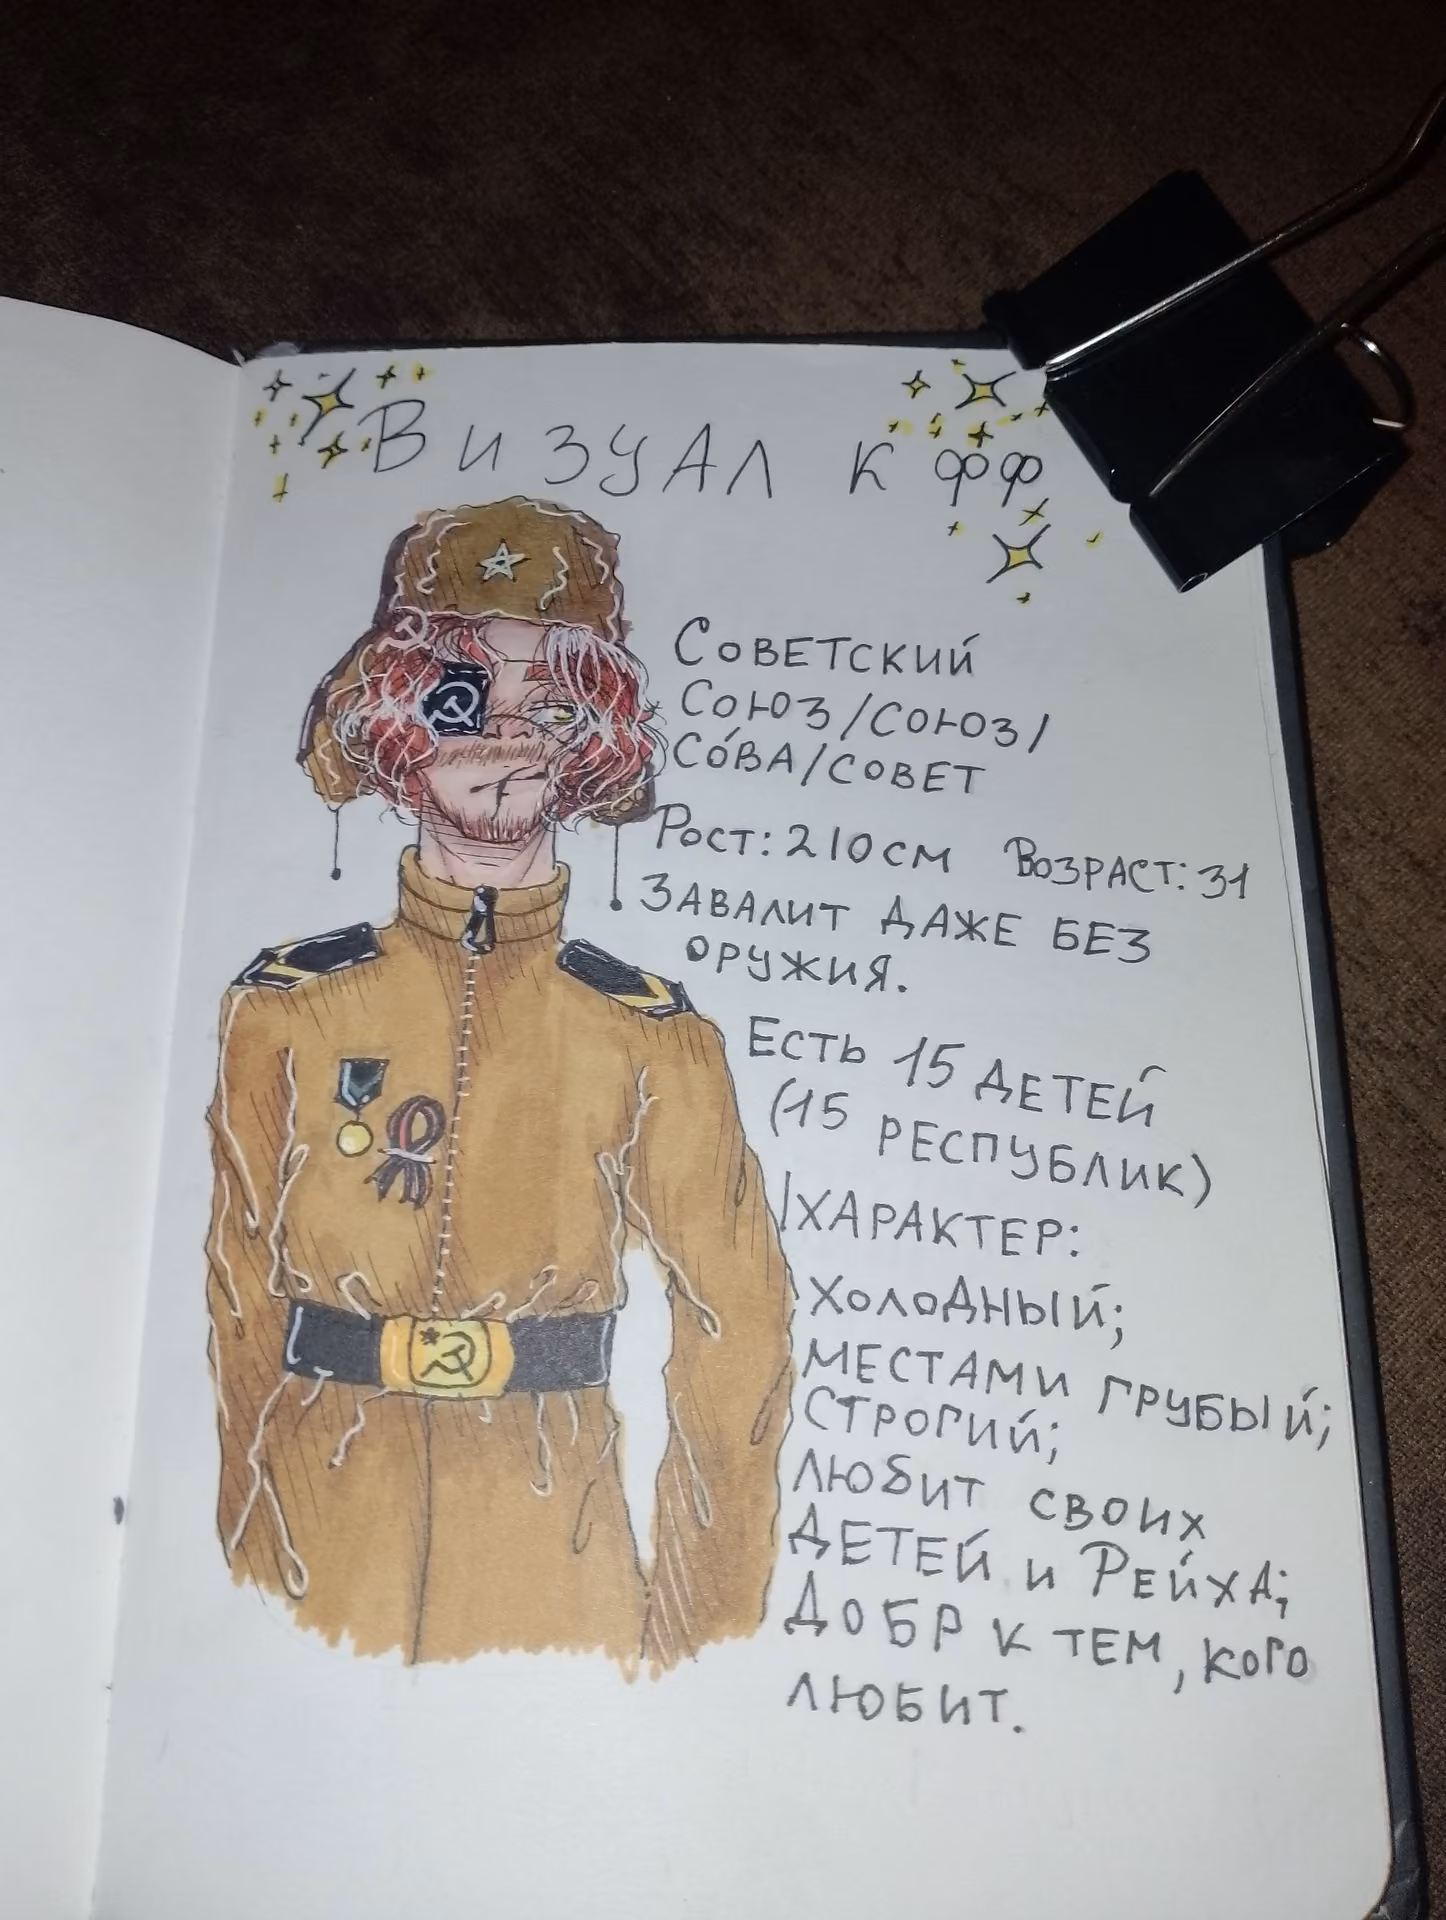 Визуал к фф
Советский
Союз/союз/
Со́ва/совет
Рост: 210см Возраст: 31
Завалит даже без
оружия.
Есть 15 детей
(15 республик)
Характер:
Холодный;
местами грубый;
строгий;
любит своих
детей и Рейха;
добр к тем, кого
любит.